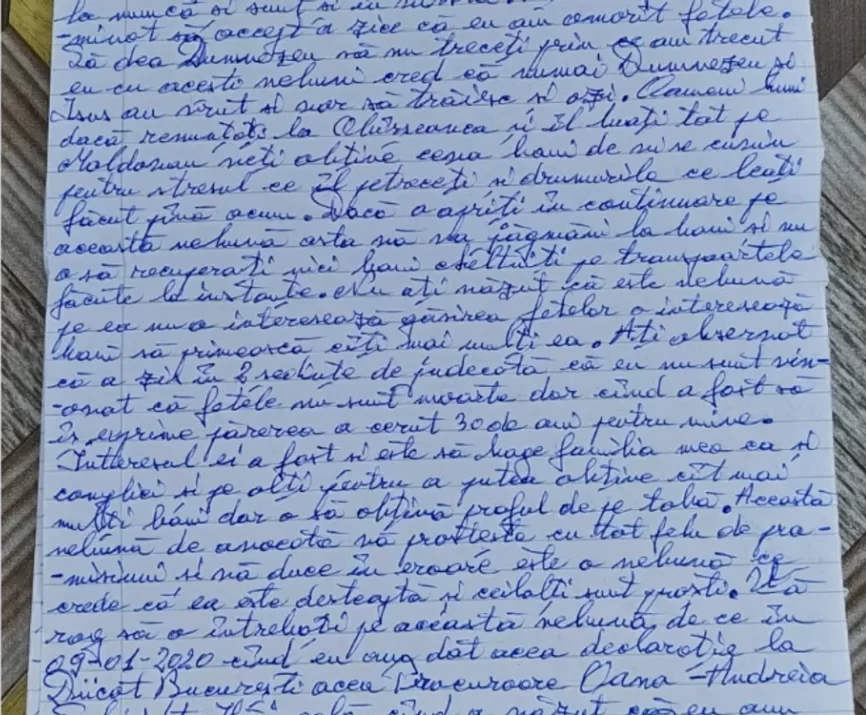 la muncă si sunt si eu
-minat să accept a zice că eu am omorît fetele.
Să dea Dumnezeu să nu treceți prin ce am trecut
eu cu acesti nebuni cred că numai Dumnezeu si
Isus au vrut si vor să trăiesc si azi. Oameni buni
dacă renunțați la Olărseanca si îl luați tot pe
Moldovan veți obține ceva bani de
pentru stresul ce îl petreceți si drumurile ce leați
făcut pînă acum. Dacă o apriți în continuare pe
această nebună asta vă va păgmăni la bani si nu
o să recuperați nici bani cheltuiți pe transpoartele
făcute la instanțe. Nu ați văzut că este nebună
pe ea nu o interesează găsirea fetelor o interesează
bani să primească cîți mai mulți ea. Ați observat
că a zis în 2 sedințe de judecată că eu nu sunt vin-
-ovat că fetele nu sunt moarte dar cînd a fost să
îs exprime părerea a cerut 30 de ani pentru mine.
Intteresul ei a fost si este să bage familia mea ca si
complici si pe alți pentru a putea obține cît mai
mulți bani dar o să obțină praful de pe tobă. Această
nebună de avocată vă prostește cu tot felu de pro-
-misiuni si vă duce în eroare este o nebună ce
crede că ea este desteaptă si ceilalți sunt prosti. Vă
rog să o întrebați pe această nebună de ce în
09-01-2020 cînd eu am dat acea declarație la
Diicot București acea Procuroare Oana-Andreia
cînd a văzut că eu am